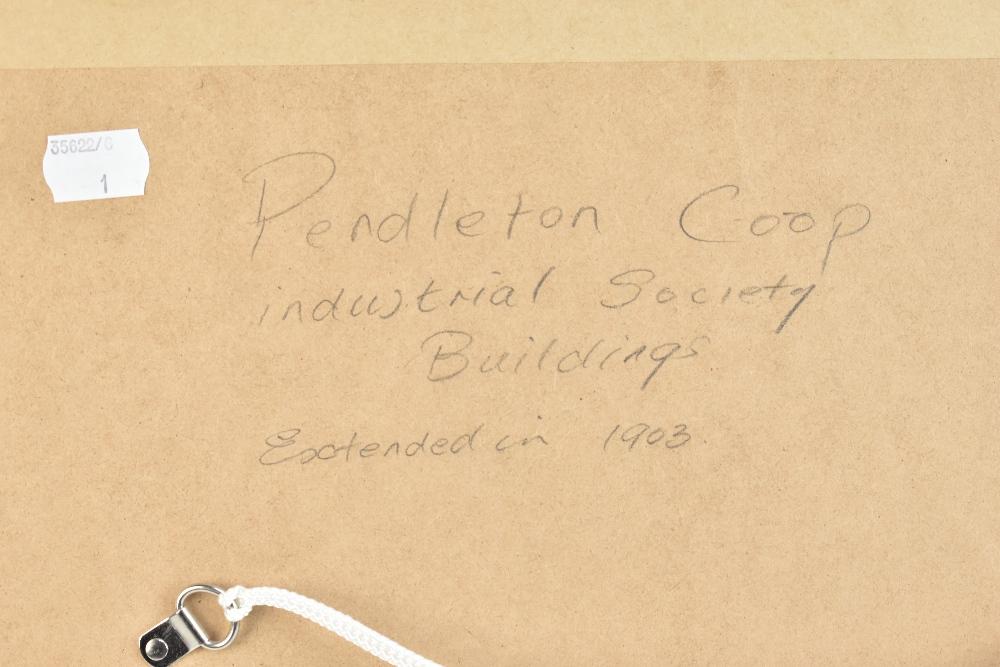 35622/6
1
Pendleton Coop
industrial Society
Buildings
Extended in 1903.